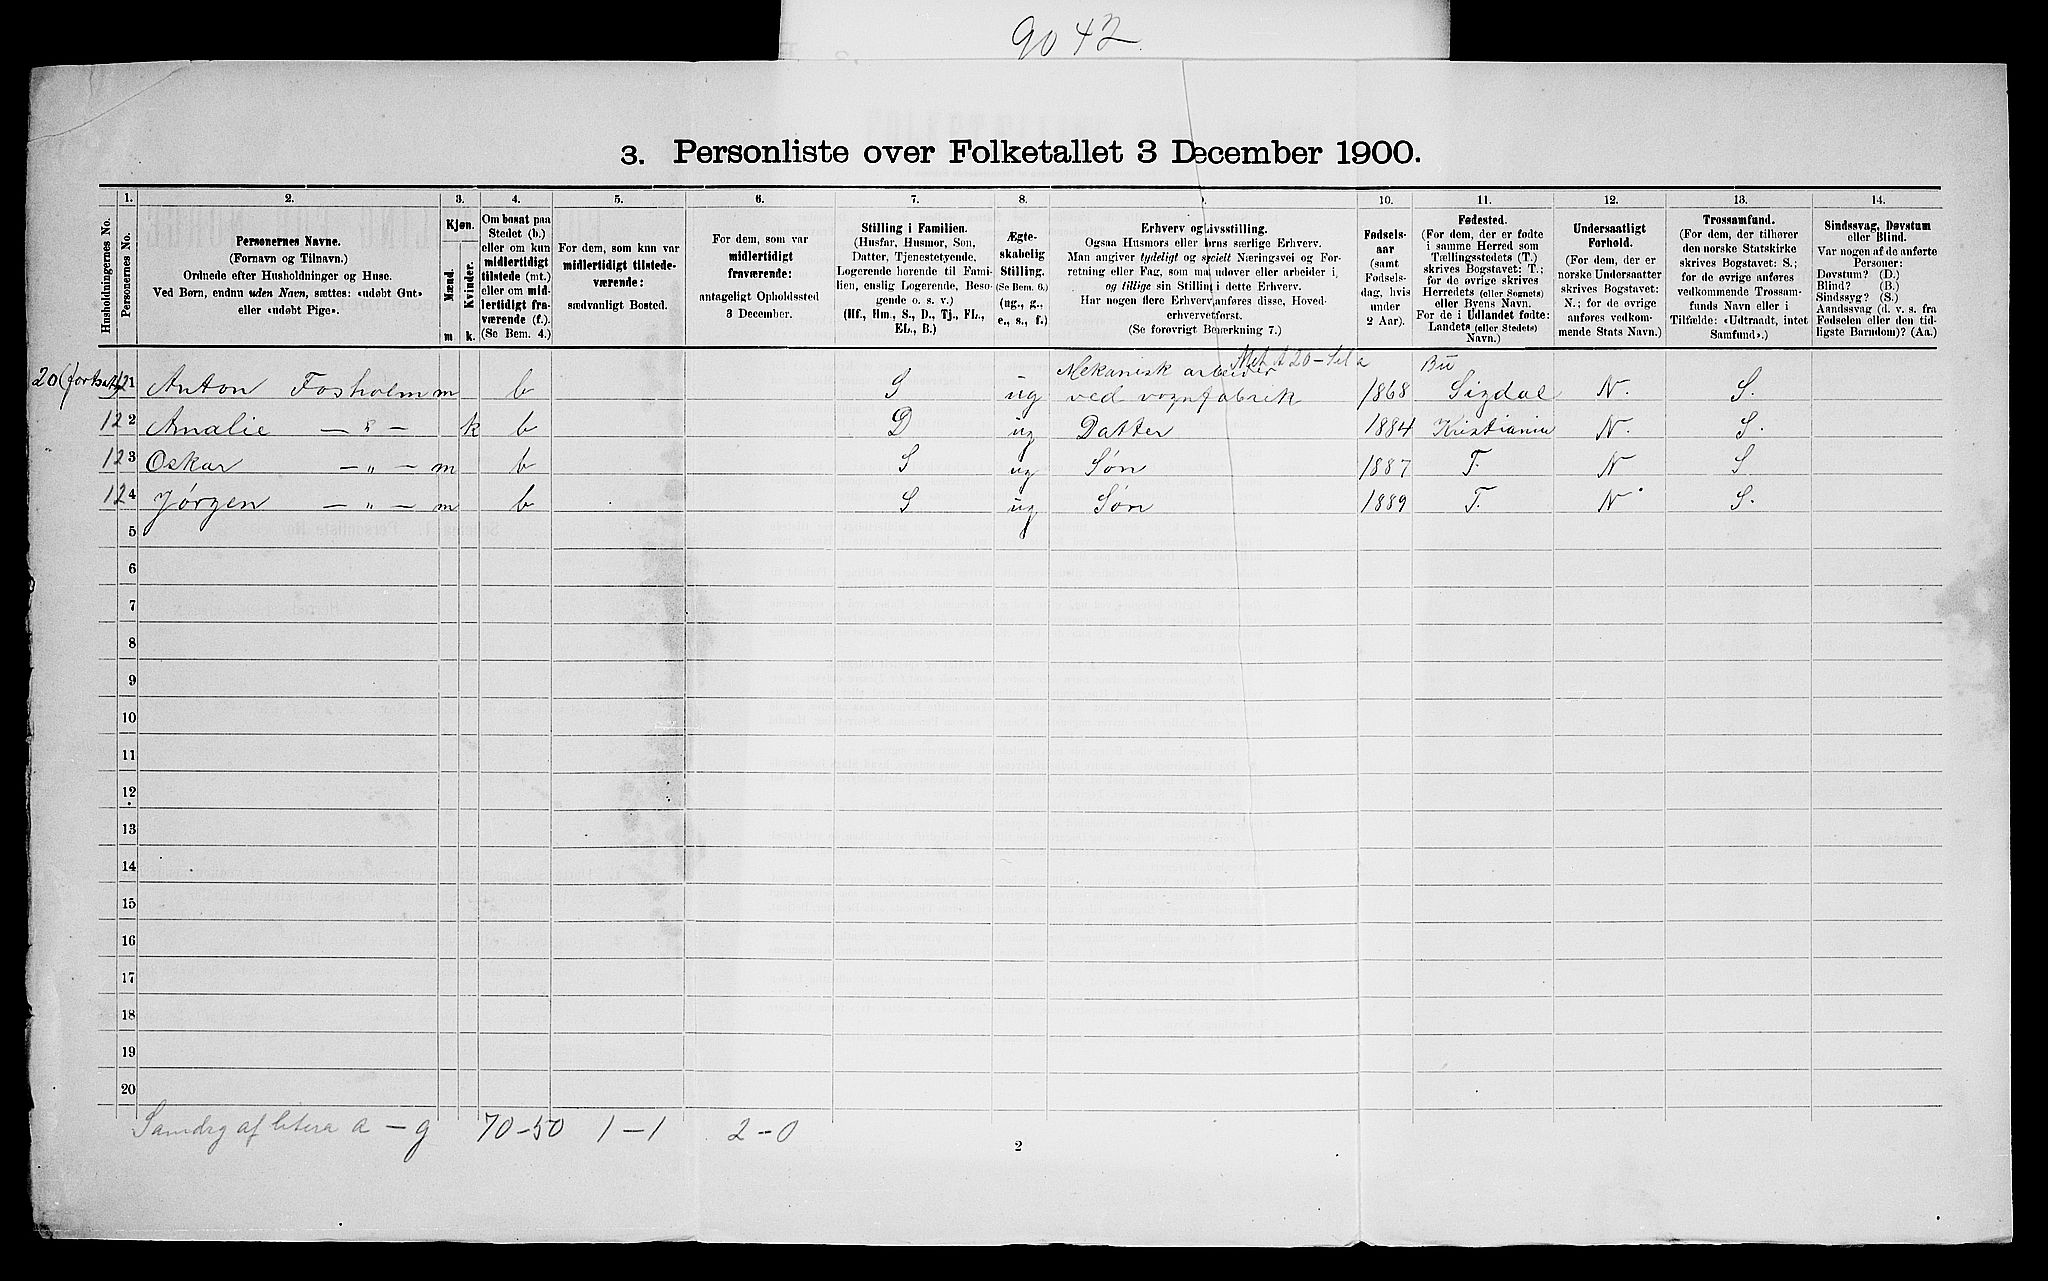 9042
3. Personliste over Folketallet 3 December 1900.
Husholdningernes No.
1.
Personernes No.
2.
Personernes Navne.
(Fornavn og Tilnavn.)
Ordnede efter Husholdninger og Huse.
Ved Børn, endnu uden Navn, sættes: «udøbt Gut»
eller «udøbt Pige».
3.
Kjøn.
Mænd.
Kvinder.
m
k.
4.
Om bosat paa
Stedet (b.)
eller om kun
midlertidigt
tilstede (mt.)
eller om mid-
lertidigt fra-
værende (f.).
(Se Bem. 4.)
5.
For dem, som kun var
midlertidigt tilstede-
værende:
sædvanligt Bosted.
6.
For dem, som var
midlertidigt
fraværende:
antageligt Opholdssted
3 December.
7.
Stilling i Familien.
(Husfar, Husmor, Søn,
Datter, Tjenestetyende,
Logerende hørende til Fami-
lien, enslig Logerende, Besø-
gende o. s. v.)
(Hf., Hm., S., D., Tj., FL.,
EL., B.)
8.
Ægte-
skabelig
Stilling.
(Se Bem. 6.)
(ug., g.,
e., s., f.)
9.
Erhverv og Livsstilling.
Ogsaa Husmors eller Børns særlige Erhverv.
Man angiver tydeligt og specielt Næringsvei og For-
retning eller Fag, som man udøver eller arbeider i,
og tillige sin Stilling i dette Erhverv.
Har nogen flere Erhverv, anføres disse, Hoved-
erhvervet først.
(Se forøvrigt Bemærkning 7.)
10.
Fødsels-
aar
(samt
Fødsels-
dag, hvis
under
2 Aar).
11.
Fødested.
(For dem, der er fødte
i samme Herred som
Tællingsstedets (T.)
skrives Bogstavet: T.;
for de øvrige skrives
Herredets (eller Sognets)
eller Byens Navn.
For de i Udlandet fødte:
Landets (eller Stedets)
Navn.)
12.
Undersaatligt
Forhold.
(For dem, der er
norske Undersaatter
skrives Bogstavet:
N.; for de øvrige
anføres vedkom-
mende Stats Navn.)
13.
Trossamfund.
(For dem, der tilhører
den norske Statskirke
skrives Bogstavet: S.;
for de øvrige anføres
vedkommende Trossam-
funds Navn eller i
Tilfælde: «Udtraadt, intet
Samfund».)
14.
Sindssvag, Døvstum
eller Blind.
Var nogen af de anførte
Personer:
Døvstum? (D.)
Blind? (B.)
Sindssyg? (S.)
Aandssvag (d. v. s. fra
Fødselen eller den tid-
ligste Barndom)? (Aa.)
20 (fortsat) 12 1 Anton Fosholm m b S ug Mekanisk arbeider ved vognfabrik 1868 Bu Sigdal N. S.
12 2 Amalie — " — k b D ug Datter 1884 Kristiania N. S.
12 3 Oskar — " — m b S ug Søn 1887 T. N S
12 4 Jørgen — " — m b S ug Søn 1889 T. N S.
5
6
7
8
9
10
11
12
13
14
15
16
17
18
19
20
Samdrg af litera a — g 70-50 1-1 2-0
2